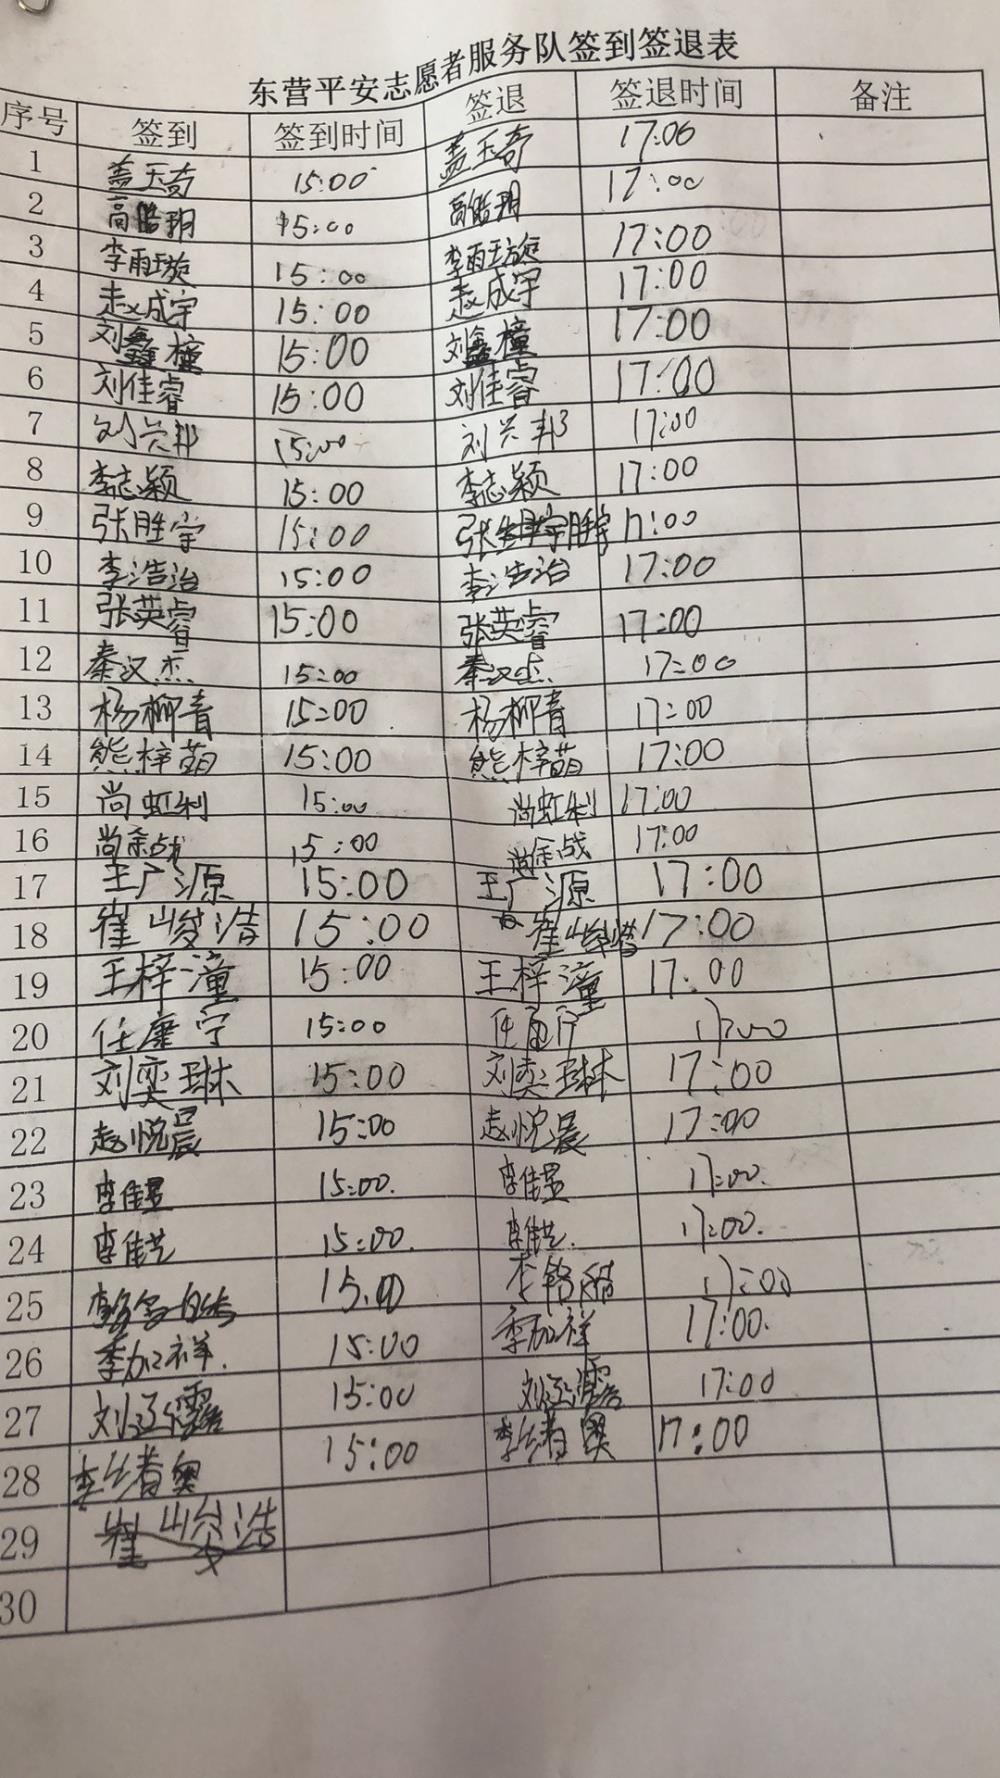 东营平安志愿者服务队签到签退表
序号 签到 签到时间 签退 签退时间 备注
1 盖玉奇 15:00 盖玉奇 17:00
2 高皓玥 15:00 高皓玥 17:00
3 李雨璇 15:00 李雨璇 17:00
4 赵成宇 15:00 赵成宇 17:00
5 刘鑫橦 15:00 刘鑫橦 17:00
6 刘佳睿 15:00 刘佳睿 17:00
7 刘兴邦 15:00 刘兴邦 17:00
8 李志颖 15:00 李志颖 17:00
9 张胜宇 15:00 张胜宇 17:00
10 李浩治 15:00 李浩治 17:00
11 张英睿 15:00 张英睿 17:00
12 秦汉杰 15:00 秦汉杰 17:00
13 杨柳青 15:00 杨柳青 17:00
14 熊梓萌 15:00 熊梓萌 17:00
15 尚虹利 15:00 尚虹利 17:00
16 尚金战 15:00 尚金战 17:00
17 王广源 15:00 王广源 17:00
18 崔峻浩 15:00 崔峻浩 17:00
19 王梓潼 15:00 王梓潼 17:00
20 任康宁 15:00 任 17:00
21 刘奕琳 15:00 刘奕琳 17:00
22 赵悦晨 15:00 赵悦晨 17:00
23 李佳昱 15:00. 李佳昱 17:00.
24 李佳艺 15:00. 李佳艺. 17:00.
25 15.00 李 17:00
26 李加祥. 15:00 李加祥 17:00.
27 刘 15:00 刘 17:00
28 李 奥 15:00 李 奥 17:00
29 崔峻浩
30